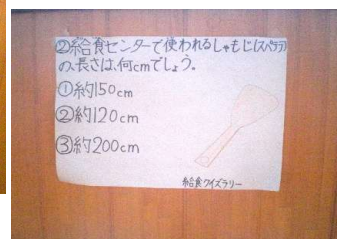 ②給食センターで使われるしゃもじ(スパテラ)
の、長さは、何cmでしょう。
①約150cm
②約120cm
③約200cm
給食クイズラリー